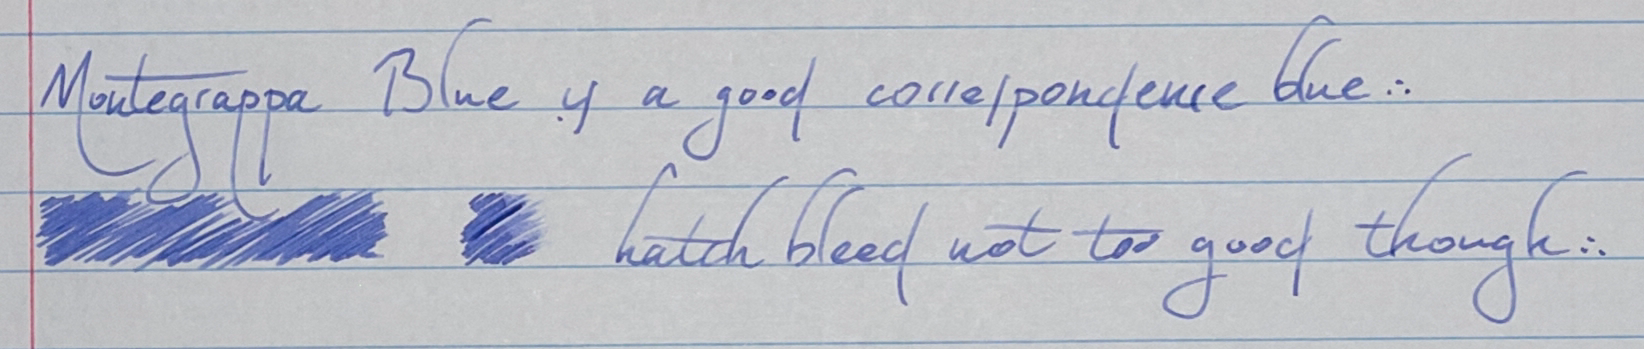 Montegrappa Blue is a good correspondence blue∴
hatch bleed not too good though∴